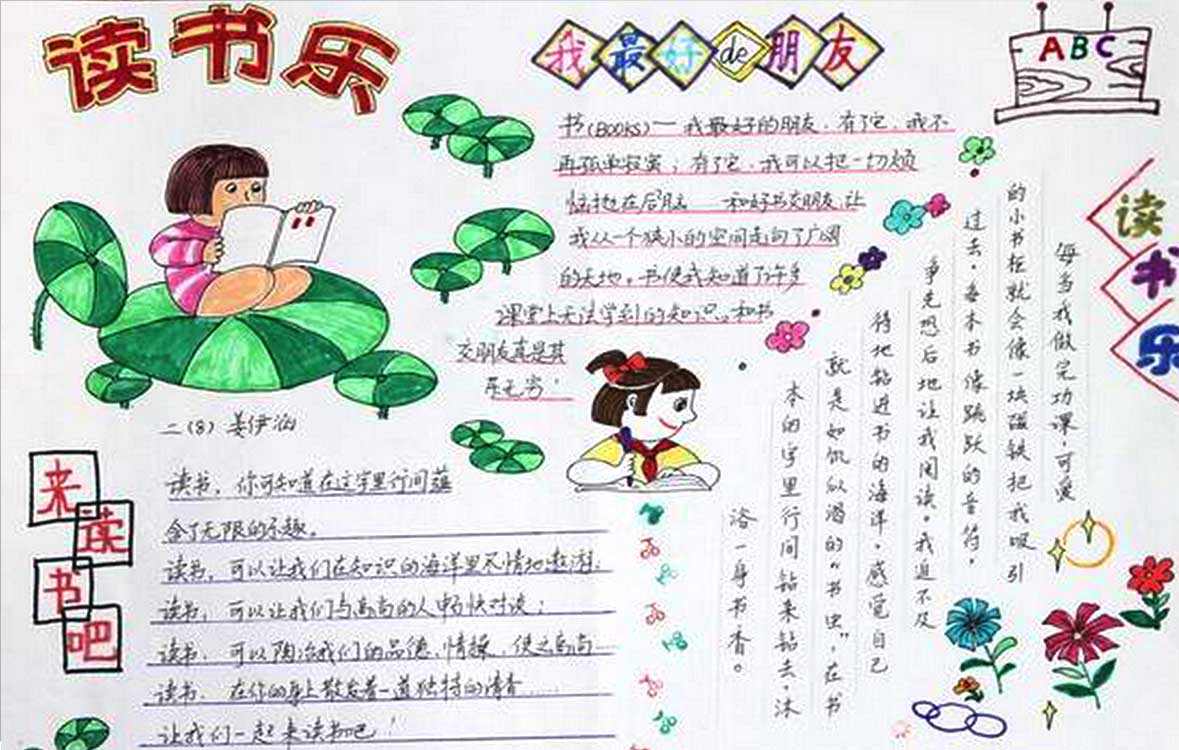 读书乐
我最好de朋友
ABC
书(BOOKS)一我最好的朋友.有了它,我不
再孤单寂寞;有了它,我可以把一切烦
恼抛在后脑 和好书交朋友,让
我从一个狭小的空间走向了广阔
的天地。书使我知道了许多
课堂上无法学到的知识。和书
交朋友真是其
乐无穷!
读书乐
每当我做完功课,可爱
的小书柜就会像一块磁铁把我吸引
过去,每本书像跳跃的音符,
争先恐后地让我阅读。我迫不及
待地钻进书的海洋,感觉自己
就是如饥似渴的“书虫”,在书
本的字里行间钻来钻去,沐
浴一身书香。
二(8)姜伊涵
来读书吧
读书,你可知道在这字里行间蕴
含了无限的乐趣。
读书,可以让我们在知识的海洋里尽情地遨游.
读书,可以让我们与高尚的人畅快对谈;
读书,可以陶冶我们的品德、情操、使之高尚
读书,在你的身上散发着一道独特的清香……
让我们一起来读书吧!